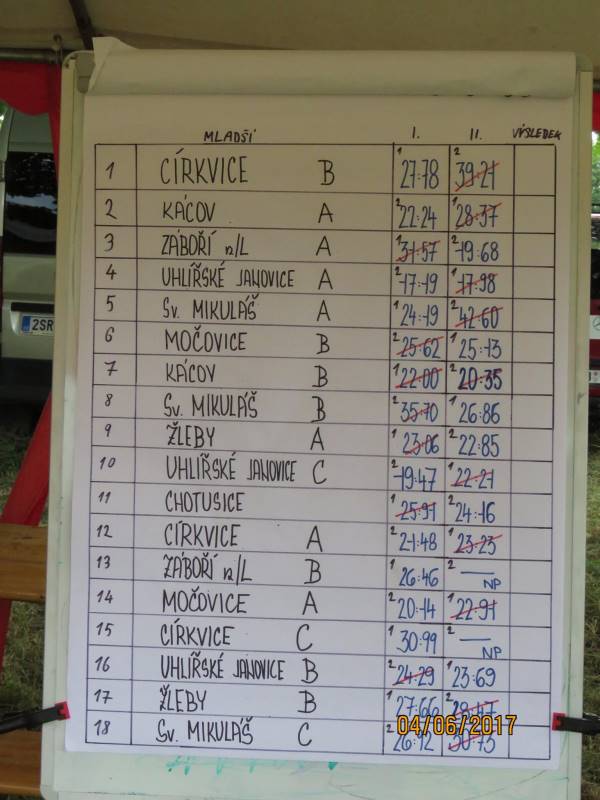 MLADŠÍ I. II. VÝSLEDEK
1 CÍRKVICE B 1 27:78 2 39:21
2 KÁCOV A 2 22:24 1 28:37
3 ZÁBOŘÍ n/L A 1 31:57 2 19:68
4 UHLÍŘSKÉ JANOVICE A 2 17:19 1 17:98
5 Sv. MIKULÁŠ A 1 24:19 2 42:60
6 MOČOVICE B 2 25:62 1 25:13
7 KÁCOV B 1 22:00 2 20:35
8 Sv. MIKULÁŠ B 2 35:70 1 26:86
9 ŽLEBY A 1 23:06 2 22:85
10 UHLÍŘSKÉ JANOVICE C 2 19:47 1 22:21
11 CHOTUSICE 1 25:91 2 24:16
12 CÍRKVICE A 2 21:48 1 23:23
13 ZÁBOŘÍ n/L B 1 26:46 2 — NP
14 MOČOVICE A 2 20:14 1 22:91
15 CÍRKVICE C 1 30:99 2 — NP
16 UHLÍŘSKÉ JANOVICE B 2 24:29 1 23:69
17 ŽLEBY B 1 27:66 2
18 Sv. MIKULÁŠ C 2 26:12
04/06/2017
2SR